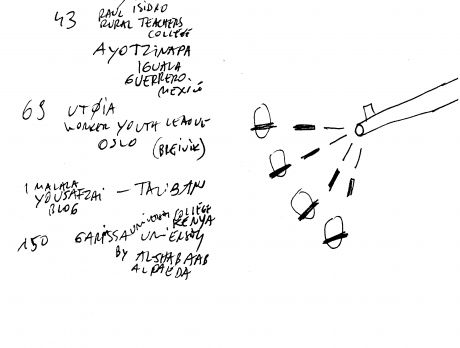 43 RAÚL ISIDRO
RURAL TEACHERS
COLLEGE
AYOTZINAPA
IGUALA
GUERRERO
MEXICO
69 UTØIA
WORKER YOUTH LEAGUE
OSLO (BREIVIK)
1 MALALA
YOUSAFZAI — TALIBAN
BLOG
UNIVERSITY COLLEGE
KENYA
150 GARISSA UNIVERSITY
BY ALSHABAAB
ALQAEDA